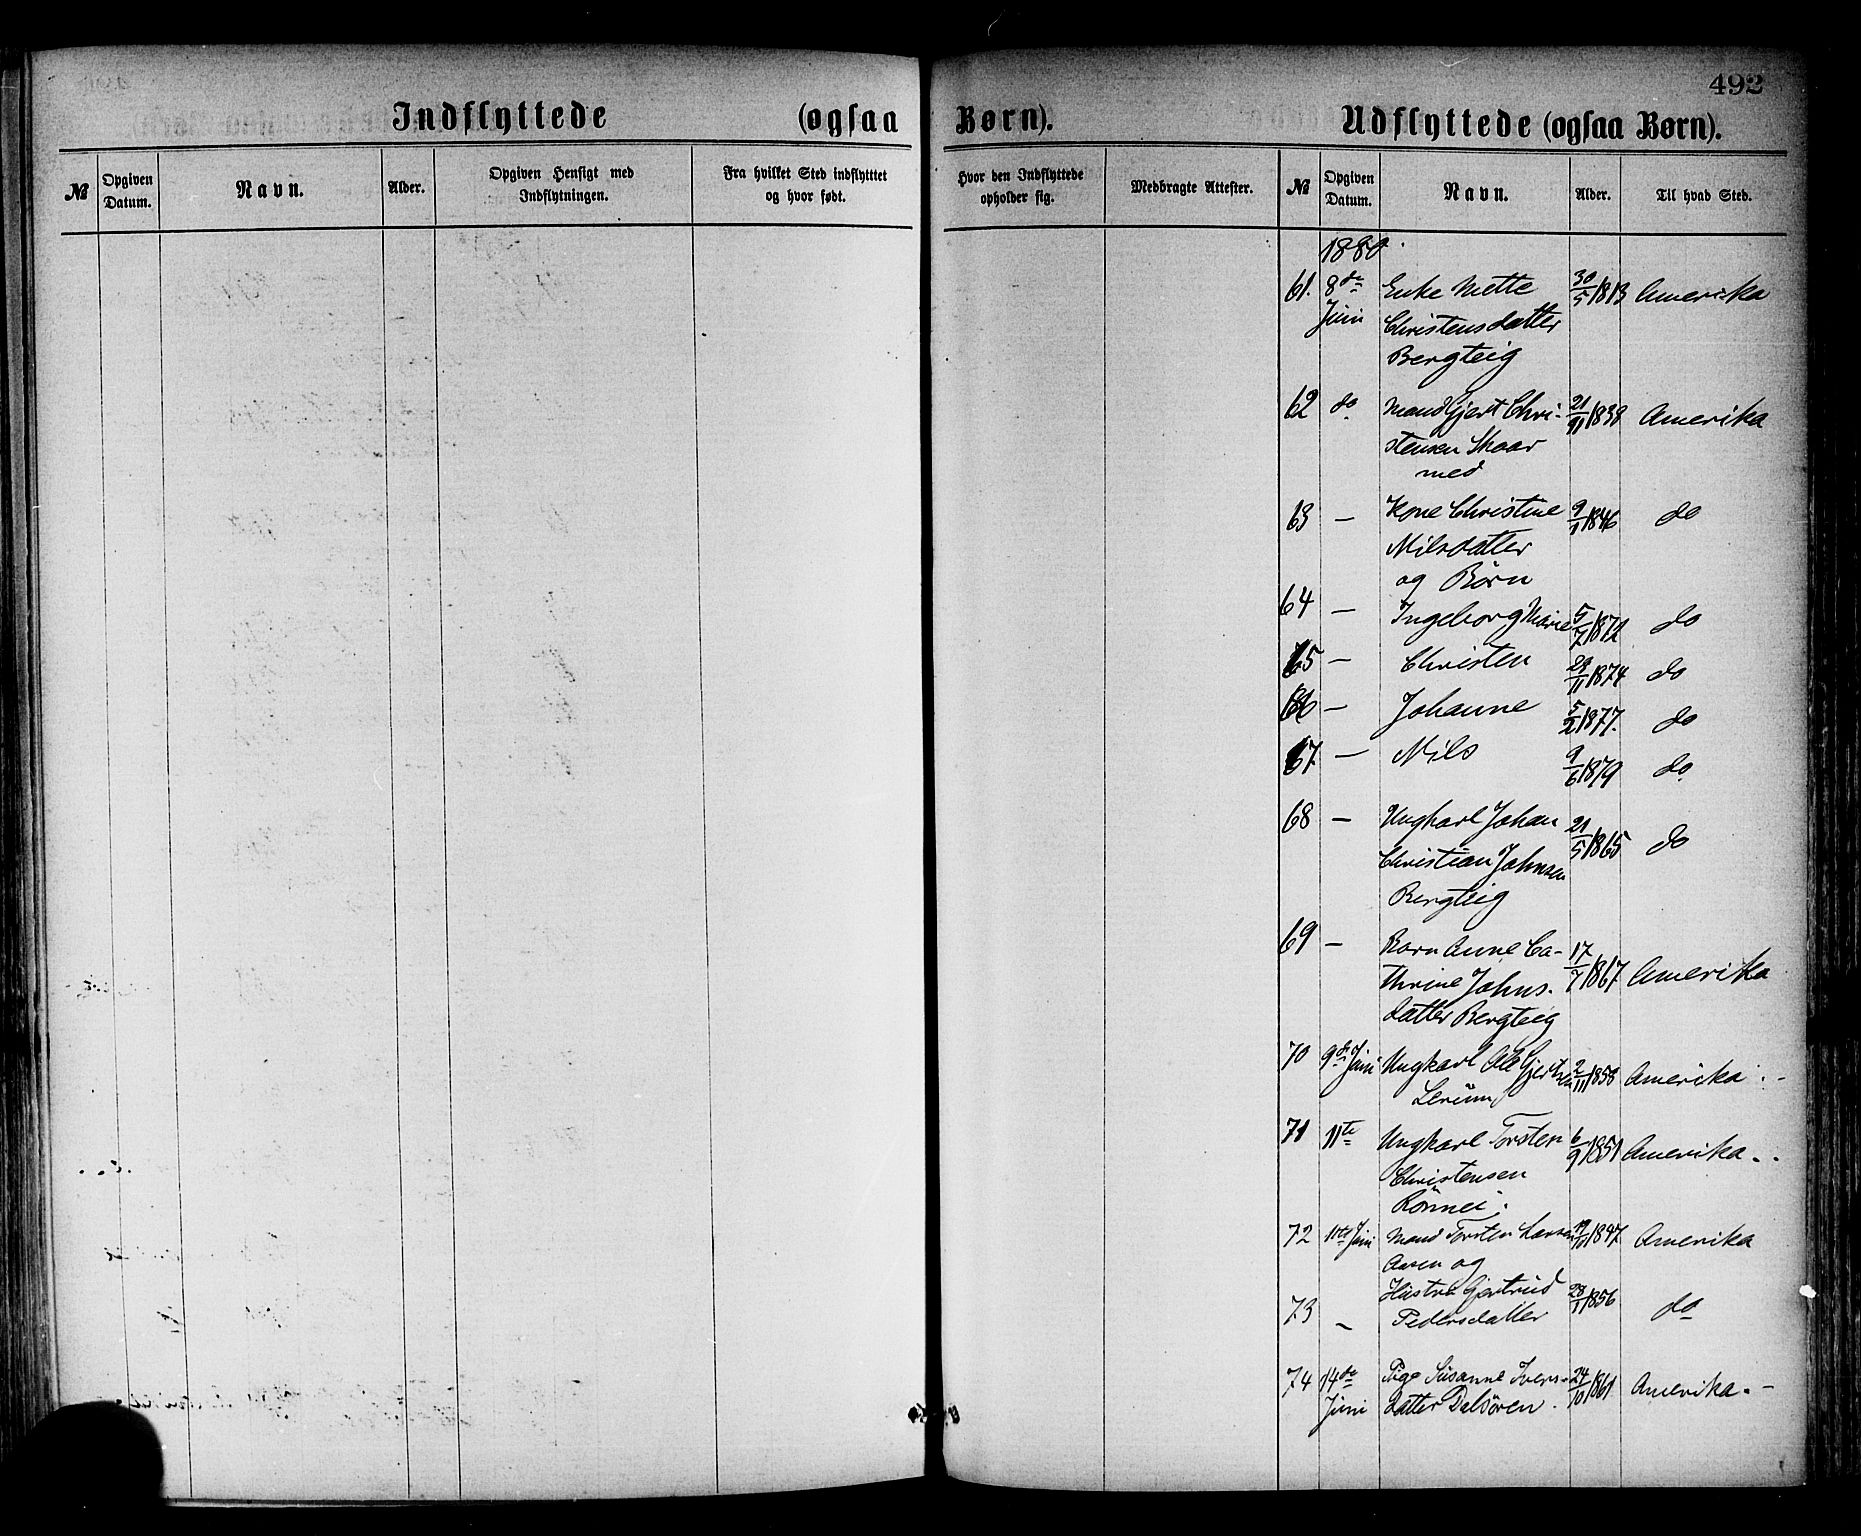 492
Indflyttede (ogsaa Børn).
Udflyttede (ogsaa Børn).
№ Opgiven Datum. Navn. Alder. Opgiven Hensigt med Indflytningen. Fra hvilket Sted indflyttet og hvor født. Hvor den Indflyttede opholder sig. Medbragte Attester.
№ Opgiven Datum. Navn. Alder. Til hvad Sted.
1880.
61. 8de Enke Mette 30/5 1813 Amerika
Juni Christensdatter
Bergteig
62 do. Mand Gjert Chri- 21/11 1838 Amerika
stensen Skaar
med
63 — Kone Christine 9/1 1846 do
Nilsdatter
og Børn
64 — Ingeborg Marie 5/7 1872 do
65 — Christen 29/11 1874 do
66 — Johanne 5/2 1877. do
67. — Nils 9/6 1879 do.
68 — Ungkarl Johan 21/5 1865 do
Christian Johnsen
Bergteig
69 — Barn Anne Ca- 17/7 1867 Amerika
thrine Johns-
datter Bergteig
70 9de Juni Ungkarl Ole Gjertsen 2/11 1858 Amerika.-
Lerum,
71 11te Ungkarl Torsten 6/9 1851 Amerika..
Christensen
Rønnei.
72 11te Juni Mand Torsten Larsen 19/10 1847 Amerika
Aasen og
Hustru Gjertrud 28/1 1856 do
73 — Pedersdatter
74 14de Pige Susanne Ivers- 24/10 1861 Amerika.-
Juni datter Dalsøren.